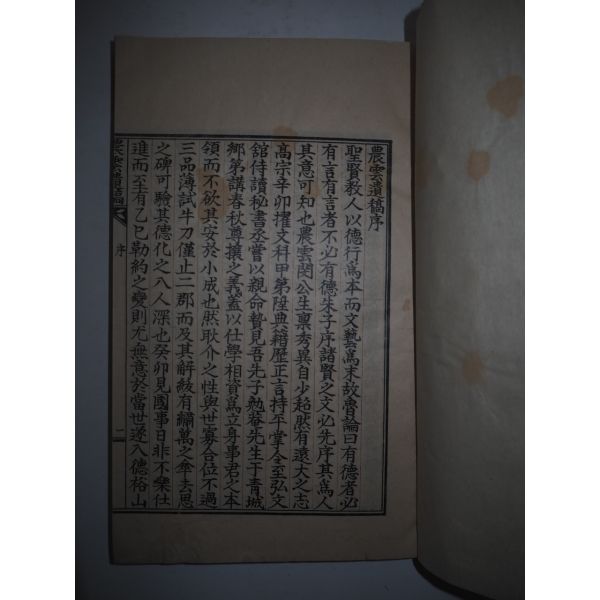 農雲遺稿序
聖賢教人以德行爲本而文藝爲末故魯論曰有德者必
有言有言者不必有德朱子序諸賢之文必先序其爲人
其意可知也農雲閔公生禀秀異自少超然有遠大之志
高宗辛卯擢文科甲第陞典籍歷正言持平掌令至弘文
舘侍讀秘書丞嘗以親命贄見吾先子勉菴先生于青城
鄉第講春秋尊攘之義蓋以仕學相資爲立身事君之本
領而不欲其安於小成也然耿介之性與世寡合位不過
三品薄試牛刀僅止二郡而及其解紱有繡萬之傘去思
之碑可驗其德化之入人深也癸卯見國事日非不樂仕
進而至有乙巳勒約之變則尤無意於當世遂入德裕山
序
二